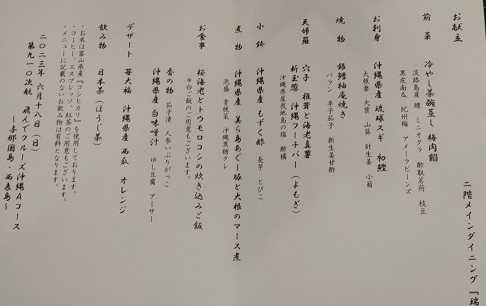 二階メインダイニング『瑞
お献立
前菜 冷やし茶碗蒸し 梅肉餡
淡路島産 鱧 ミニオクラ 酢取茗荷 枝豆
黒皮南瓜 紀州梅 アメーラビーンズ
お刺身 沖縄県産 琉球スギ 初鰹
大根妻 大葉 山葵 針生姜 小菊
焼物 銀鱈柚庵焼き
バラン 辛子茄子 新生姜甘酢
天婦羅 穴子 椎茸と海老真薯
新玉葱 沖縄フーチバー（よもぎ）
沖縄県屋我地島の塩 酢橘
小鉢 沖縄県産 もずく酢 長芋 とびこ
煮物 沖縄県産 美ら島あぐー豚と大根のマース煮
泡盛 青梗菜 沖縄黒糖タレ
お食事 桜海老とトウモロコシの炊き込みご飯
＊白ご飯のご用意もございます。
香の物 茄子漬 人参 いぶりがっこ
沖縄県産 白味噌汁 ゆし豆腐 アーサー
デザート 苺大福 沖縄県産 西瓜 オレンジ
飲み物 日本茶（ほうじ茶）
・お米は富山県産『コシヒカリ』を使用しております。
・コーヒー、エスプレッソ、紅茶のご用意もございます。
・メニューに記載のないお飲み物は有料となります。
二〇二三年 六月十八日（日）
第九一〇次航 飛んでクルーズ沖縄Aコース
～与那国島・西表島～